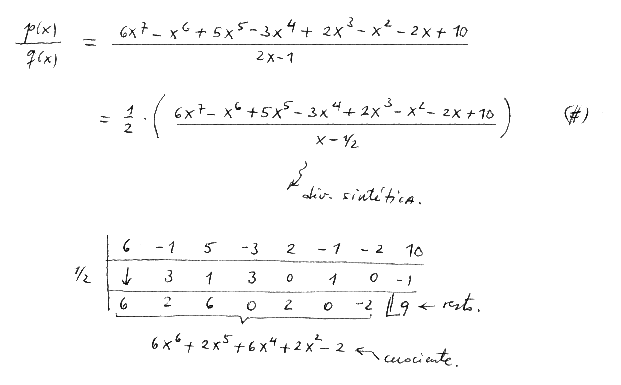 p(x)/q(x) = (6x⁷ - x⁶ + 5x⁵ - 3x⁴ + 2x³ - x² - 2x + 10)/(2x-1)
= 1/2 · ( (6x⁷ - x⁶ + 5x⁵ - 3x⁴ + 2x³ - x² - 2x + 10)/(x - 1/2) ) (#)
div. sintética.
6 -1 5 -3 2 -1 -2 10
1/2 ↓ 3 1 3 0 1 0 -1
6 2 6 0 2 0 -2 9 ← resto.
6x⁶ + 2x⁵ + 6x⁴ + 2x² - 2 ← cuociente.